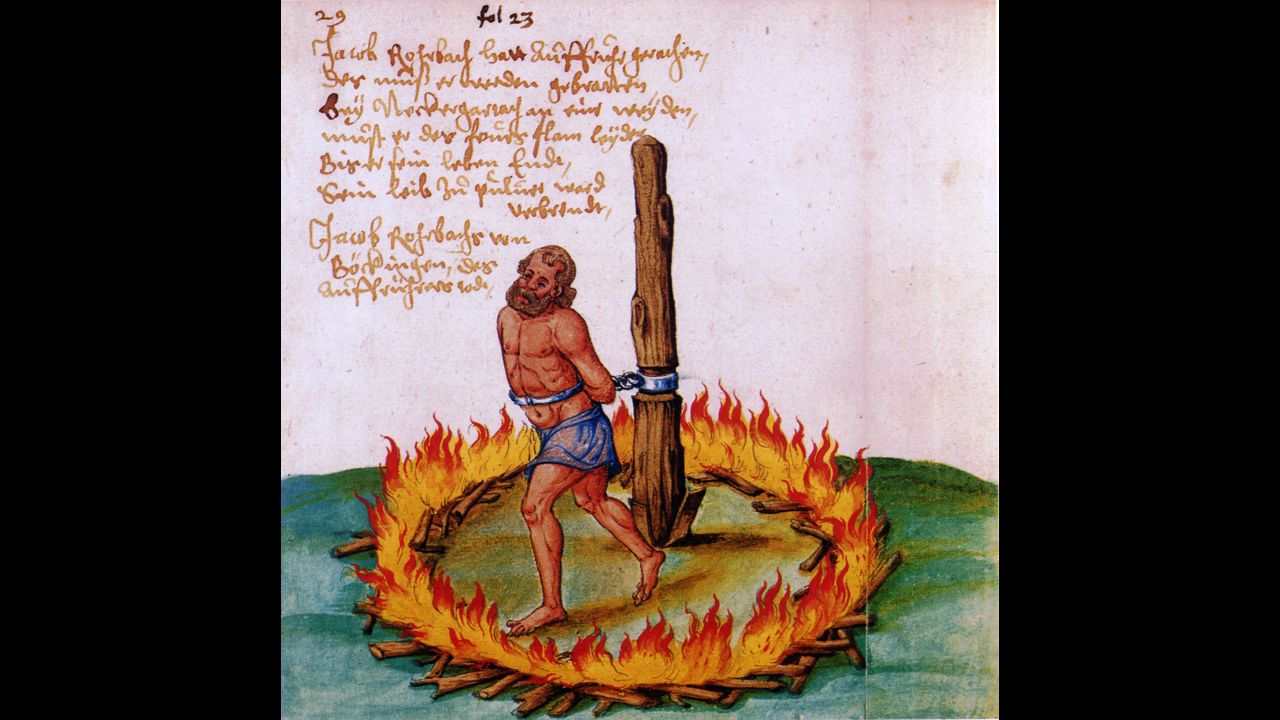 29 fol 23
Jacob Rohrbach hatt Auffruhr gerachen,
des muß er werden gebratten,
Bey Neckergartach an eine weyden,
must er des feurs flam leyden
Bis er sein leben Endt,
Sein leib zu puluer ward
verbrendt,
Jacob Rohrbachs von
Böckingen, des
Auffrührers tod,